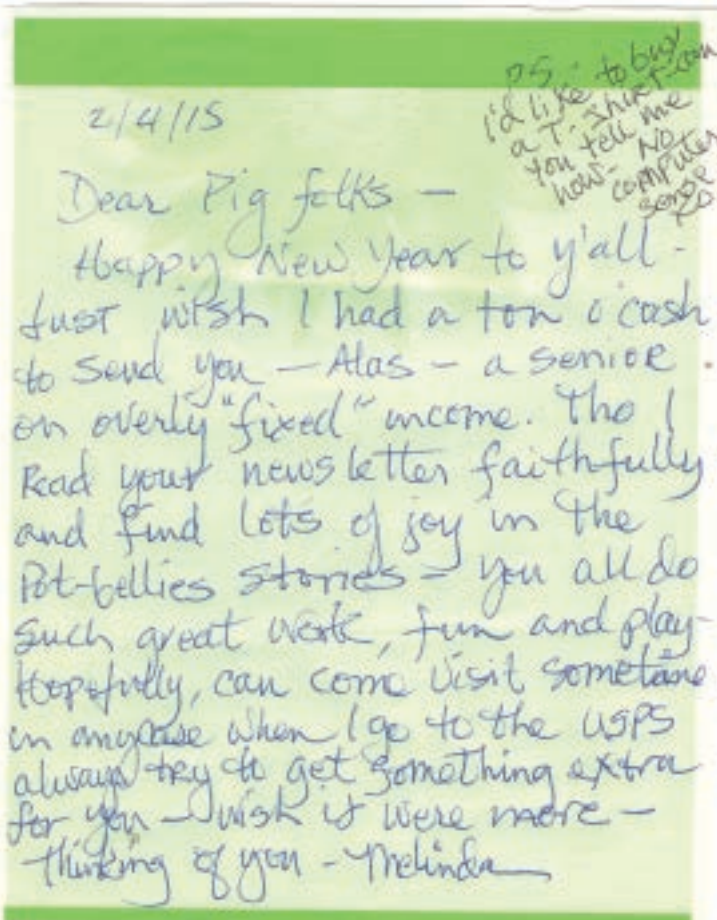 2/4/15
PS-
I'd like to buy
a T-shirt-can
you tell me
how- No
computer
Dear Pig folks —
Happy New Year to y'all -
Just wish I had a ton o' cash
to send you — Alas — a senior
on overly "fixed" income. Tho I
Read your newsletter faithfully
and find lots of joy in the
Pot-bellies stories - you all do
such great work, fun and play-
Hopefully, can come visit sometime
in any case when I go to the USPS
always try to get something extra
for you — wish it were more —
Thinking of you - Melinda